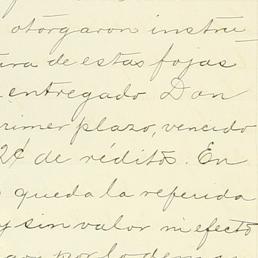 otorgaron instru-
ura de estas fojas
entregado Don
primer plazo, vencido
2¢ de réditos. En
queda la referida
y sin valor ni efecto
por lo demas